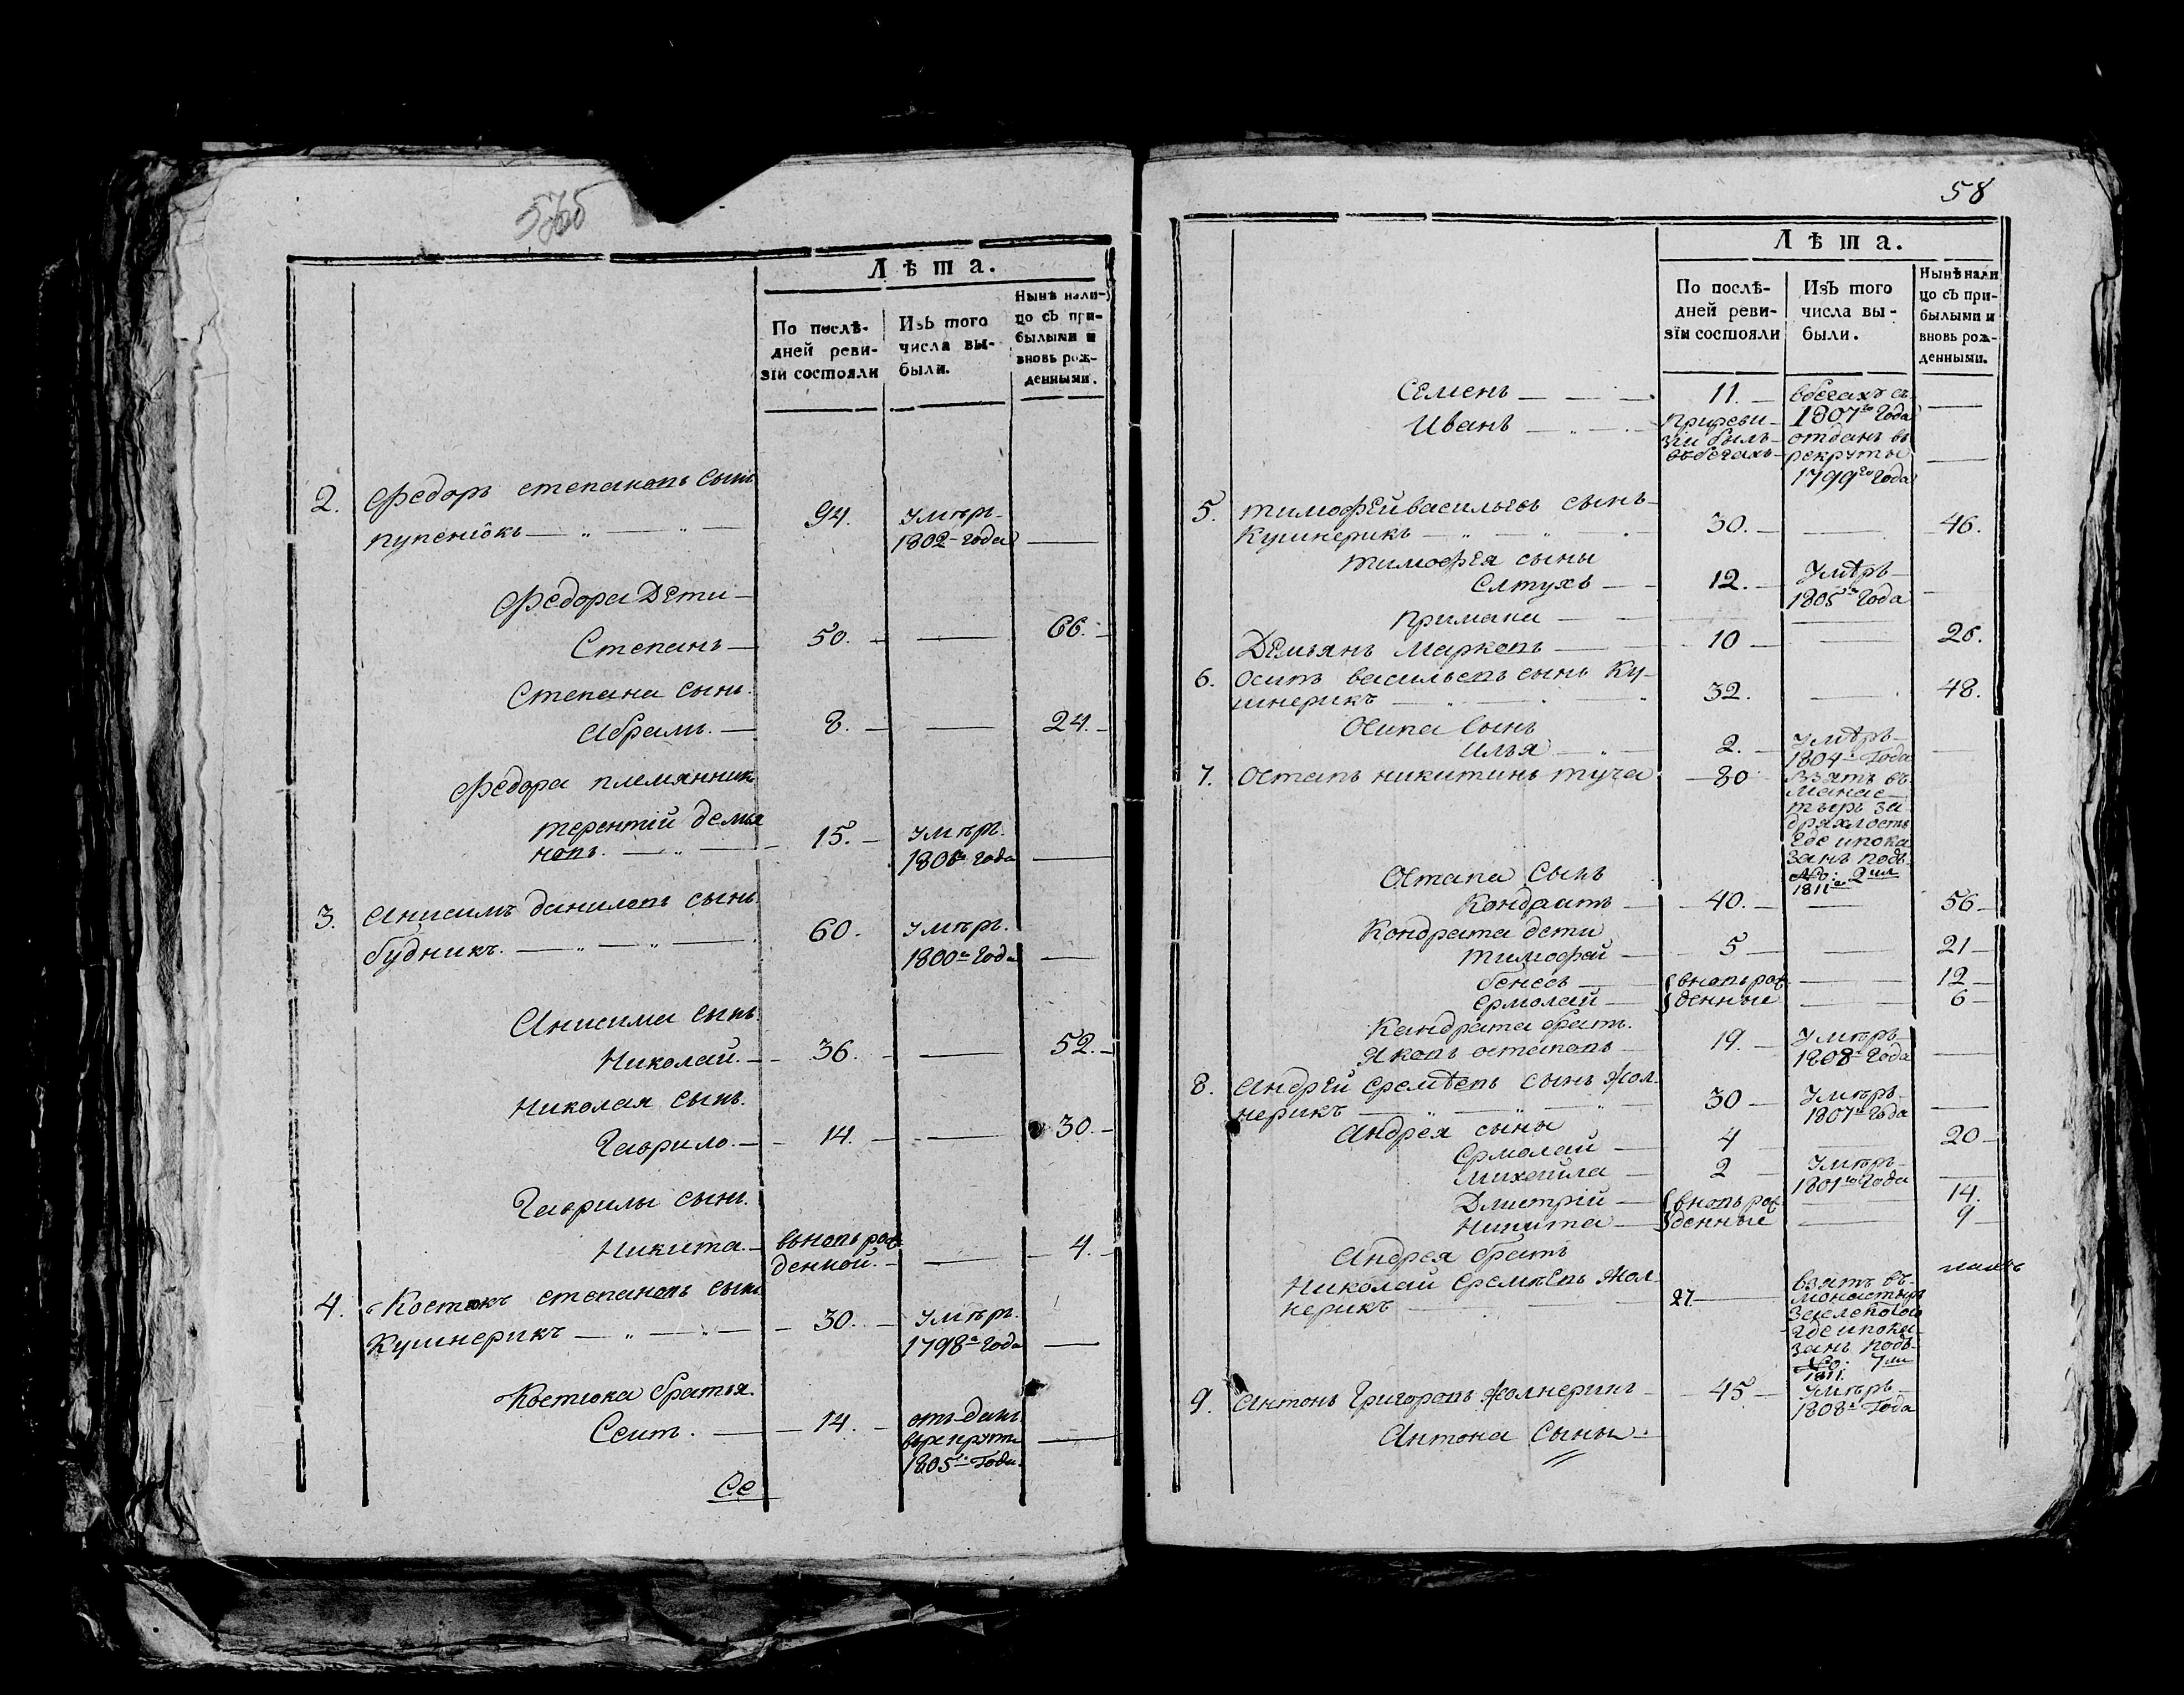 Лѣта.
По послѣ-
дней реви-
зіи состояли
Изъ того
числа вы-
были.
Нынѣ нали-
цо съ при-
былыми и
вновь рож-
денными.
2. Федоръ степановъ сынъ
пупенюкъ 94. умѣръ
1802 года
Федора Дети
Степанъ 50. 66.
Степана сынъ
Абрамъ. 8. 24.
Федора племянник
терентій демья
новъ. 15. умѣръ.
года
3. Анисимъ даниловъ сынъ
будникъ. 60. умѣръ.
1800го года
Анисима сынъ.
Николай. 36. 52.
Николая сынъ.
Гаврило. 14. 30.
Гаврилы сынъ.
Никита. вновь рож
денной. 4.
4. Костюкъ степановъ сынъ
Кушнерикъ 30. умѣръ.
1798го года
Костюка братья.
14. отъ данъ
в рекруты
1805го года.
Се
58
Лѣта.
По послѣ-
дней реви-
зіи состояли
Изъ того
числа вы-
были.
Нынѣ нали
цо съ при-
былыми и
вновь рож-
денными.
Семенъ 11. вбегахъ съ
1807го года
Иванъ приреви-
зіи былъ
въбегахъ
отданъ въ
рекруты
1799го года
5. тимофей васильевъ сынъ
Кушнерикъ 30. 46.
тимофея сыны
Елтухъ 12. Умѣръ
1805го года
примаки
Демьянъ Марковъ 10 26.
6. Осипъ васильевъ сынъ Ку-
шнерикъ 32. 48.
Осипа сынъ
илья 2. умѣръ
1804го года
7. Остапъ никитинъ туча 80 взятъ въ
манас-
тыръ за
дряхлость
где и пока
занъ подъ
No: 2ил
1811го
Остапа сынъ
Кондратъ 40. 56
Кондрата дети
тимофей 5 21
бенесь вновь рож 12
ермолай денные 6
Кандрата братъ.
Яковъ остаповъ 19. умѣръ
1808го года
8. Андрей еремѣевъ сынъ жол-
нерикъ 30 умѣръ
1807го года
Андрея сыны
Ермолай 4 20
михайла 2 умѣръ
1801го года
Дмитрій вновь рож 14.
Никита денные 9
Андрея братъ
Николай еремѣевъ жол-
нерикъ 27 взятъ въ
монастыръ
где и пока-
занъ подъ
No: 7ил
1811.
9. Антонъ григоровъ жолнерикъ 45 умѣръ
1808го года
Антона сыны